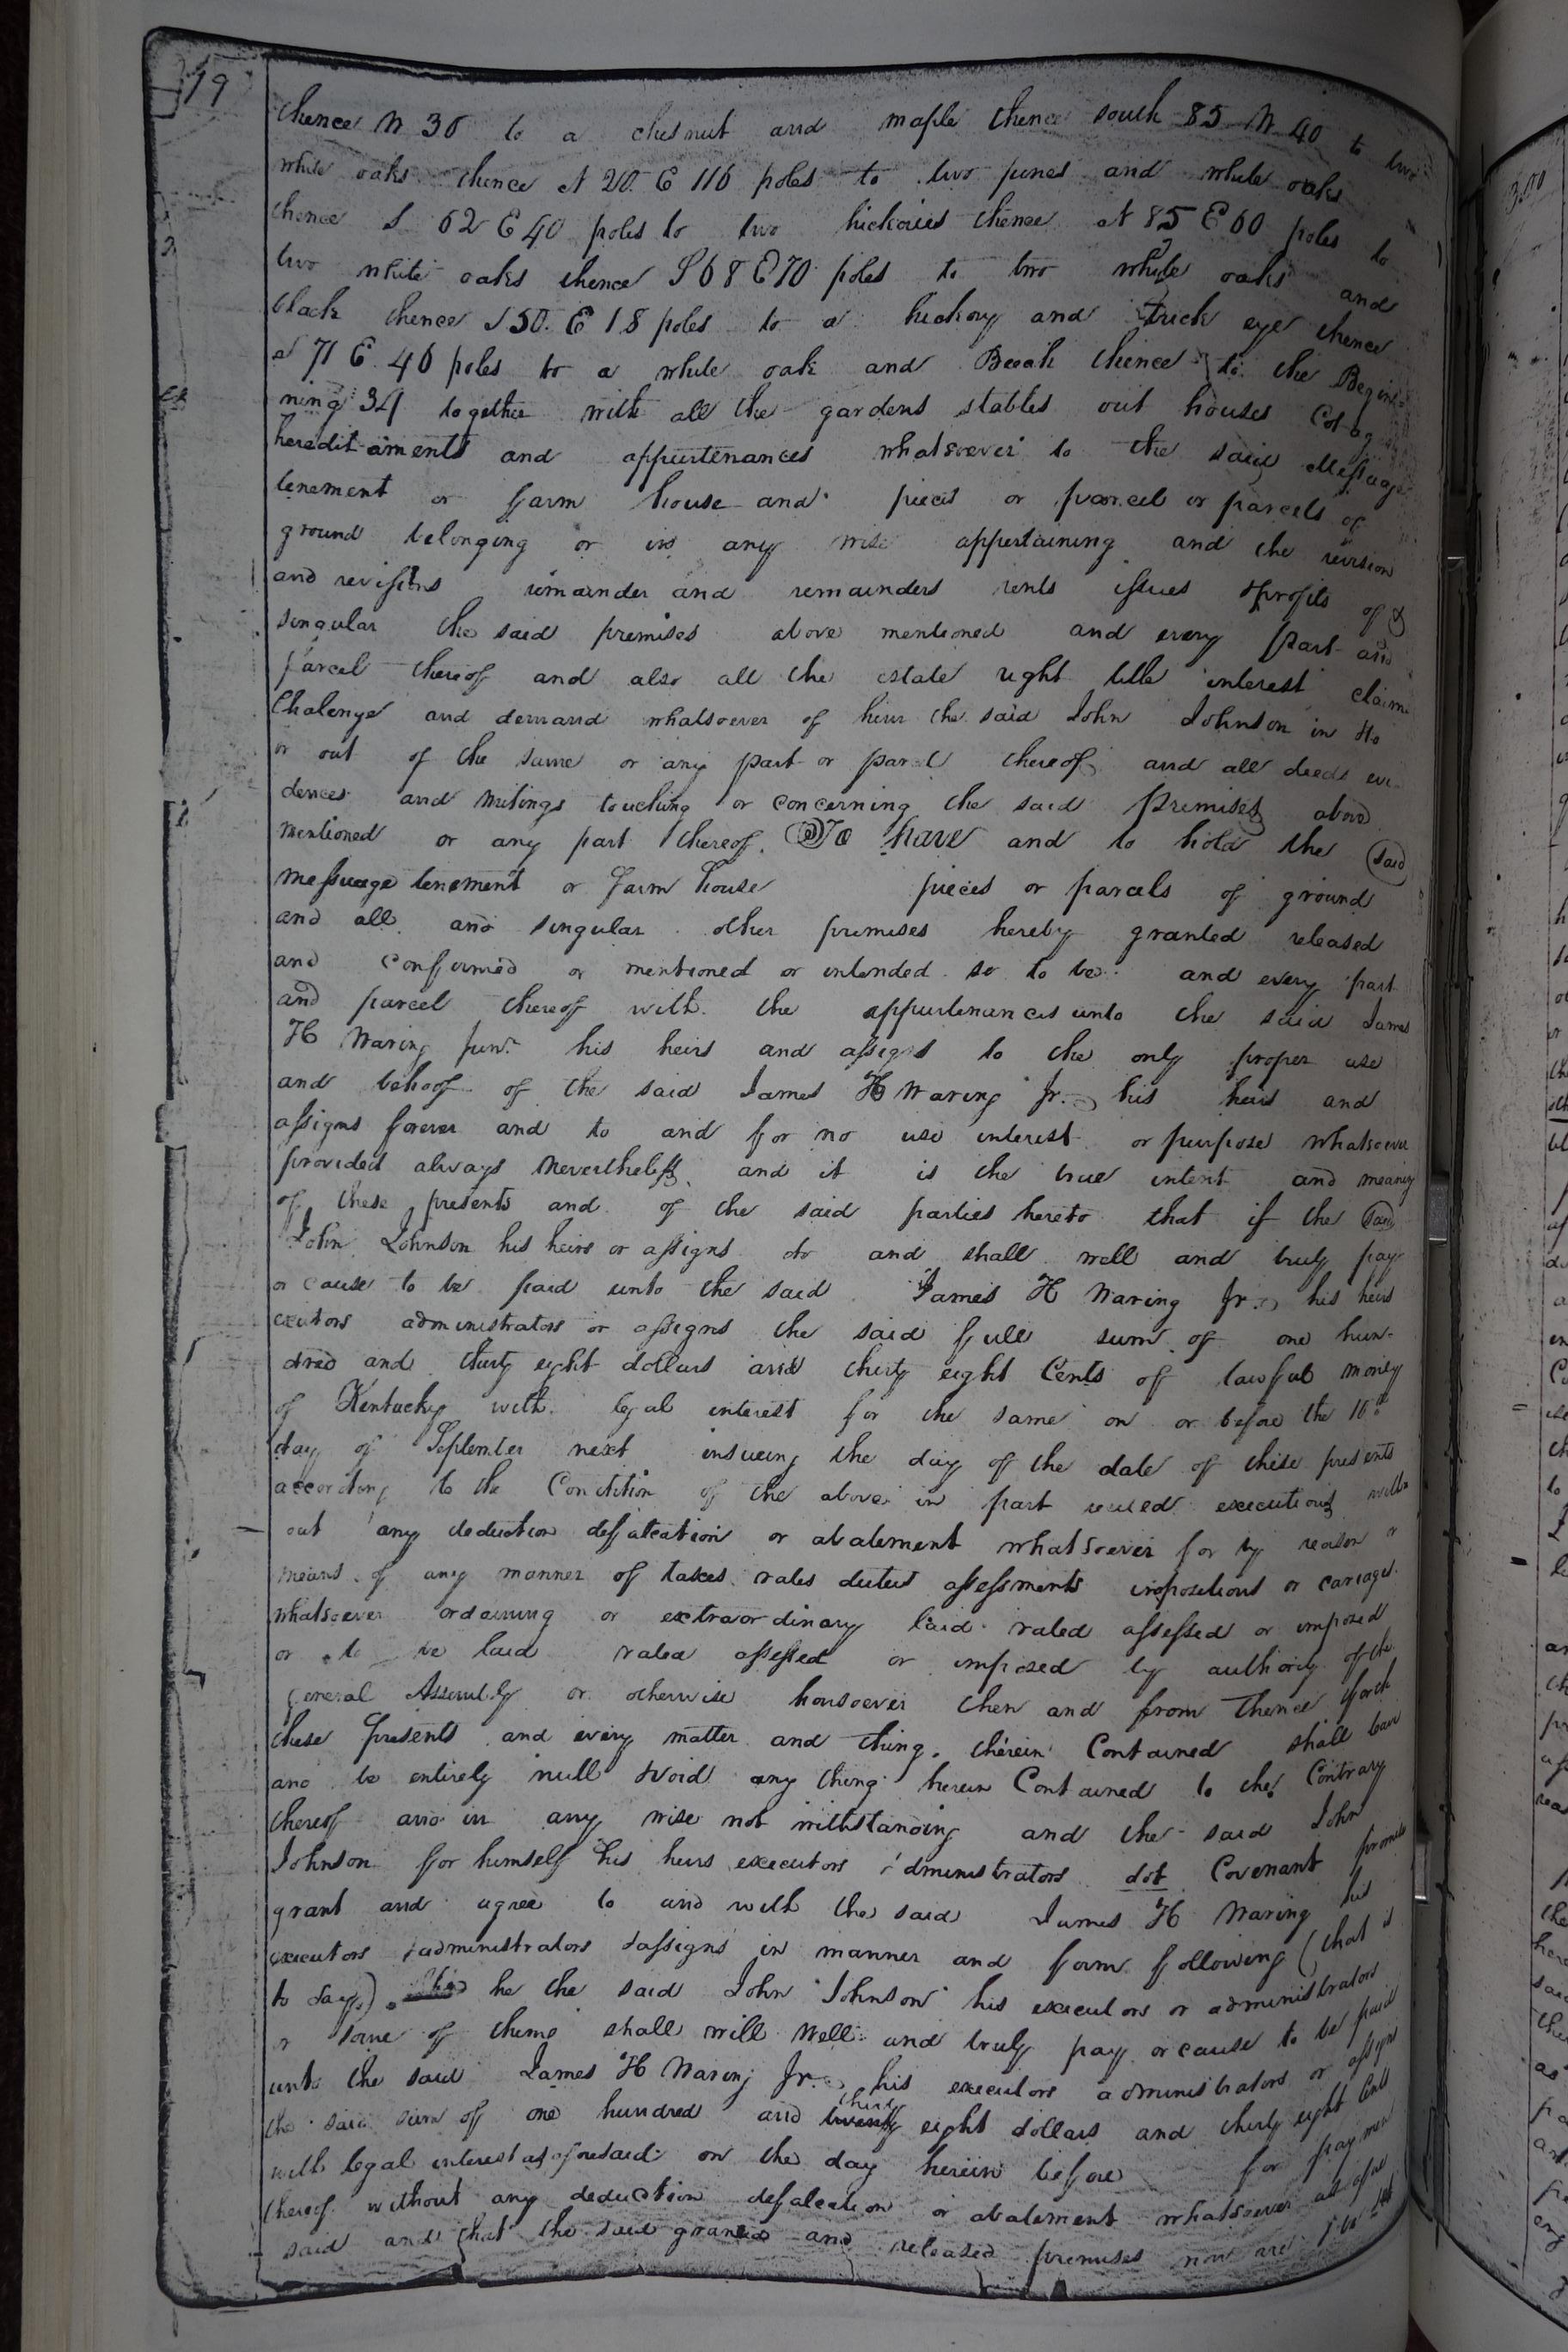 19
thence N 30 to a chesnut and maple thence south 85 W 40 to two
white oaks thence N 20 E 116 poles to two pines and white oaks
thence S 62 E 40 poles to two hickories thence N 85 E 60 poles to
two white oaks thence S 68 E 70 poles to two white oaks and
black thence S 50 E 18 poles to a hickory and thence
N 71 E 46 poles to a white oak and Beach thence to the Begin=
ning 34 together with all the gardens stables out houses
heredit aments and appurtenances whatsoever to the said Messuage
tenement or farm house and pieces or parcel or parcels of
ground belonging or in any wise appertaining and the reversion
and revissions remainder and remainders rents issues & profits of &
singular the said premises above mentioned and every part and
parcel thereof and also all the estate right title interest claim
Chalenge and demand whatsoever of him the said John Johnson in to
or out of the same or any part or parcel thereof and all deeds evi-
dences and writings touching or concerning the said Premises above
mentioned or any part thereof. To have and to hold the said
messuage tenement or farm house pieces or parcels of ground
and all and singular other premises hereby granted released
and confirmed or mentioned or intended so to be and every part
and parcel thereof with the appurtenances unto the said James
H Waring Junr his heirs and assigns to the only proper use
and behoof of the said James H Waring Jr. his heirs and
assigns forever and to and for no use interest or purpose whatsoever
provided always Nevertheless and it is the true intent and meaning
of these presents and of the said parties hereto that if the said
John Johnson his heirs or assigns do and shall well and truly pay
or cause to be paid unto the said James H Waring Jr. his heirs
exutors administrators or assigns the said full sum of one hun-
dred and thirty eight dollars and thirty eight Cents of lawful money
of Kentucky with legal interest for the same on or before the 16th
day of September next insueing the day of the date of these presents
according to the Condition of the above in part executions with
out any deduction defalcation or abatement whatsoever for by reason or
means of any manner of taxes rates duties assessments impositions or cariages
whatsoever ordaining or extraordinary laid rated assessed or imposed
or to be laid rated assessed or imposed by authority of the
General Assembly or otherwise howsoever then and from thence forth
these presents and every matter and thing therein Contained shall
and be entirely null & void any thing herein Contained to the Contrary
thereof and in any wise not withstanding and the said John
Johnson for himself his heirs executors administrators dot Covenant promise
grant and agree to and with the said James H Waring his
executors administrators & assigns in manner and form following (that is
to say) he the said John Johnson his executors or administrators
or some of theme shall will well and truly pay or cause to be paid
unto the said James H Waring Jr. his executors administrators or assigns
the said sum of one hundred and thirty eight dollars and thirty eight Cents
with legal interest as aforesaid on the day herein before for paymen
thereof without any deduction defalcation or abatement whatsoever as afore
said and that the said granted and released premises now are